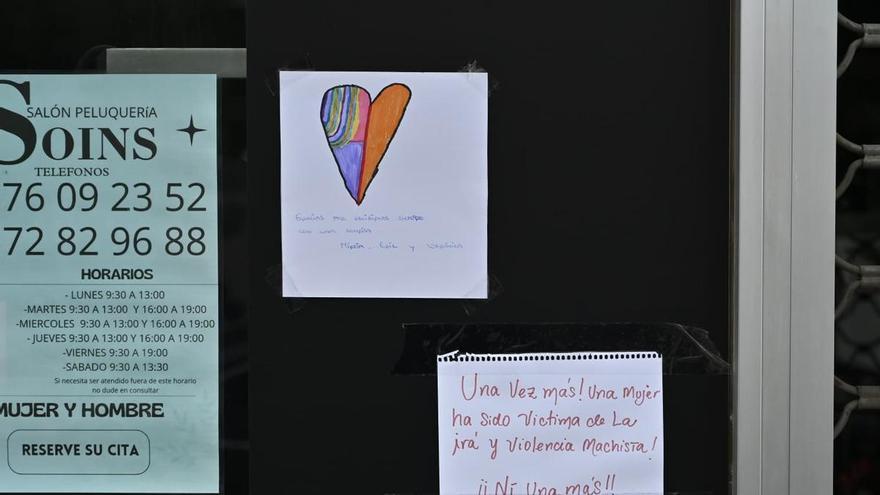 SALÓN PELUQUERíA
SOINS
TELEFONOS
76 09 23 52
72 82 96 88
HORARIOS
- LUNES 9:30 A 13:00
-MARTES 9:30 A 13:00 Y 16:00 A 19:00
-MIERCOLES 9:30 A 13:00 Y 16:00 A 19:00
- JUEVES 9:30 A 13:00 Y 16:00 A 19:00
-VIERNES 9:30 A 19:00
-SABADO 9:30 A 13:30
Si necesita ser atendido fuera de este horario
no dude en consultar
MUJER Y HOMBRE
RESERVE SU CITA
Gracias por recibirnos siempre
con una sonrisa.
y Verónica
Una Vez más! Una Mujer
ha sido Victima de La
irá y Violencia Machista!
¡¡Ní Una más!!